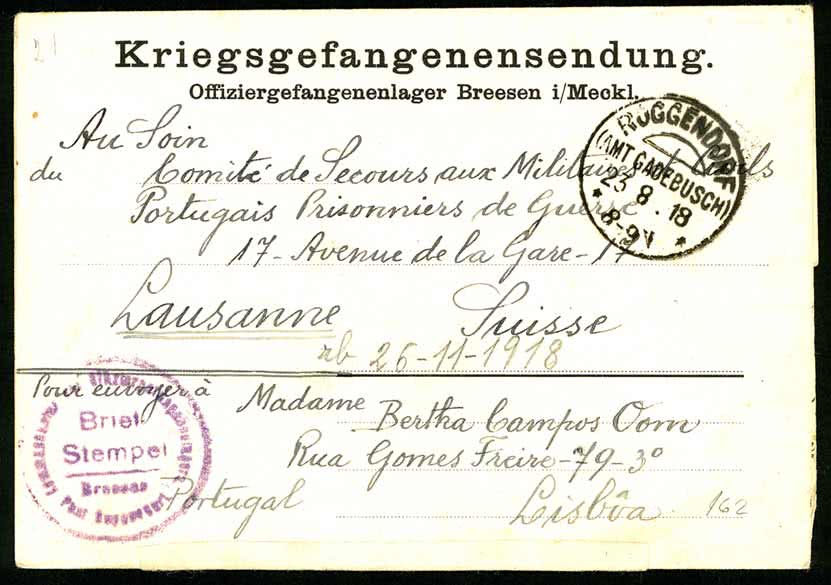 21
Kriegsgefangenensendung.
Offiziergefangenenlager Breesen i/Meckl.
Au Soin
du Comité de Secours aux Militaires et Civils
Portugais Prisonniers de Guerre
17-Avenue de la Gare-17
Lausanne Suisse
rb 26-11-1918
Pour envoyer à Madame
Bertha Campos Oom
Rua Gomes Freire-79-3º
Portugal Lisbôa 162
ROGGENDORF
(AMT GADEBUSCH)
23.8.18
* 8-9V *
Brief
Stempel
Breesen